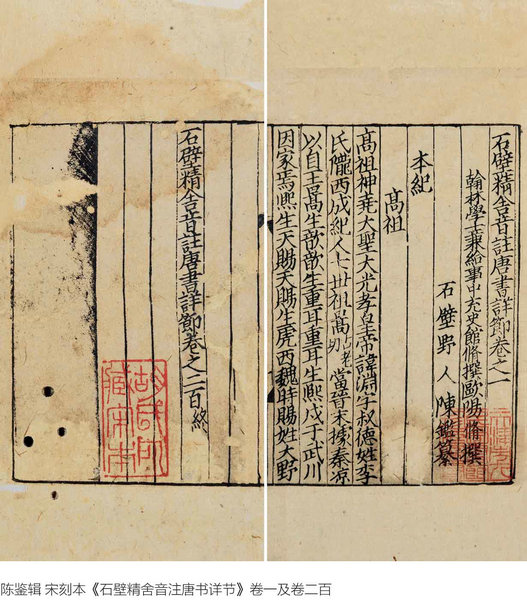 石壁精舍音註唐書詳節卷之一
翰林學士兼給事中充史館脩撰歐陽脩撰
石壁野人陳鑑纂
本紀
高祖
高祖神堯大聖大光孝皇帝諱淵字叔德姓李
氏隴西成紀人七世祖暠古老切當晉末據秦凉
以自王暠生歆歆生重耳重耳生熙戍于武川
因家焉熙生天賜天賜生虎西魏時賜姓大野
石壁精舍音註唐書詳節卷之二百終
藏宋本
陈鉴辑 宋刻本《石壁精舍音注唐书详节》卷一及卷二百